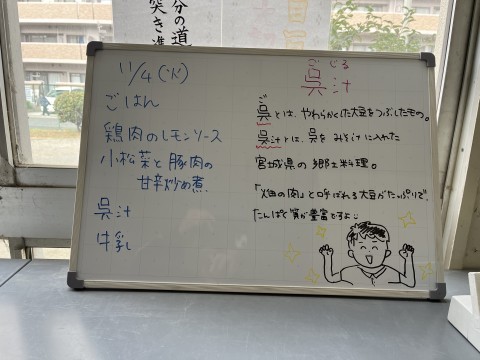 分の道
突き進
11/4(火)
ごはん
鶏肉のレモンソース
小松菜と豚肉の
甘辛炒め煮
呉汁
牛乳
ごじる
呉汁
ご
呉とは、やわらかくした大豆をつぶしたもの。
呉汁とは、呉をみそ汁に入れた
宮城県の郷土料理。
「畑の肉」と呼ばれる大豆がたっぷりで、
たんぱく質が豊富ですよ